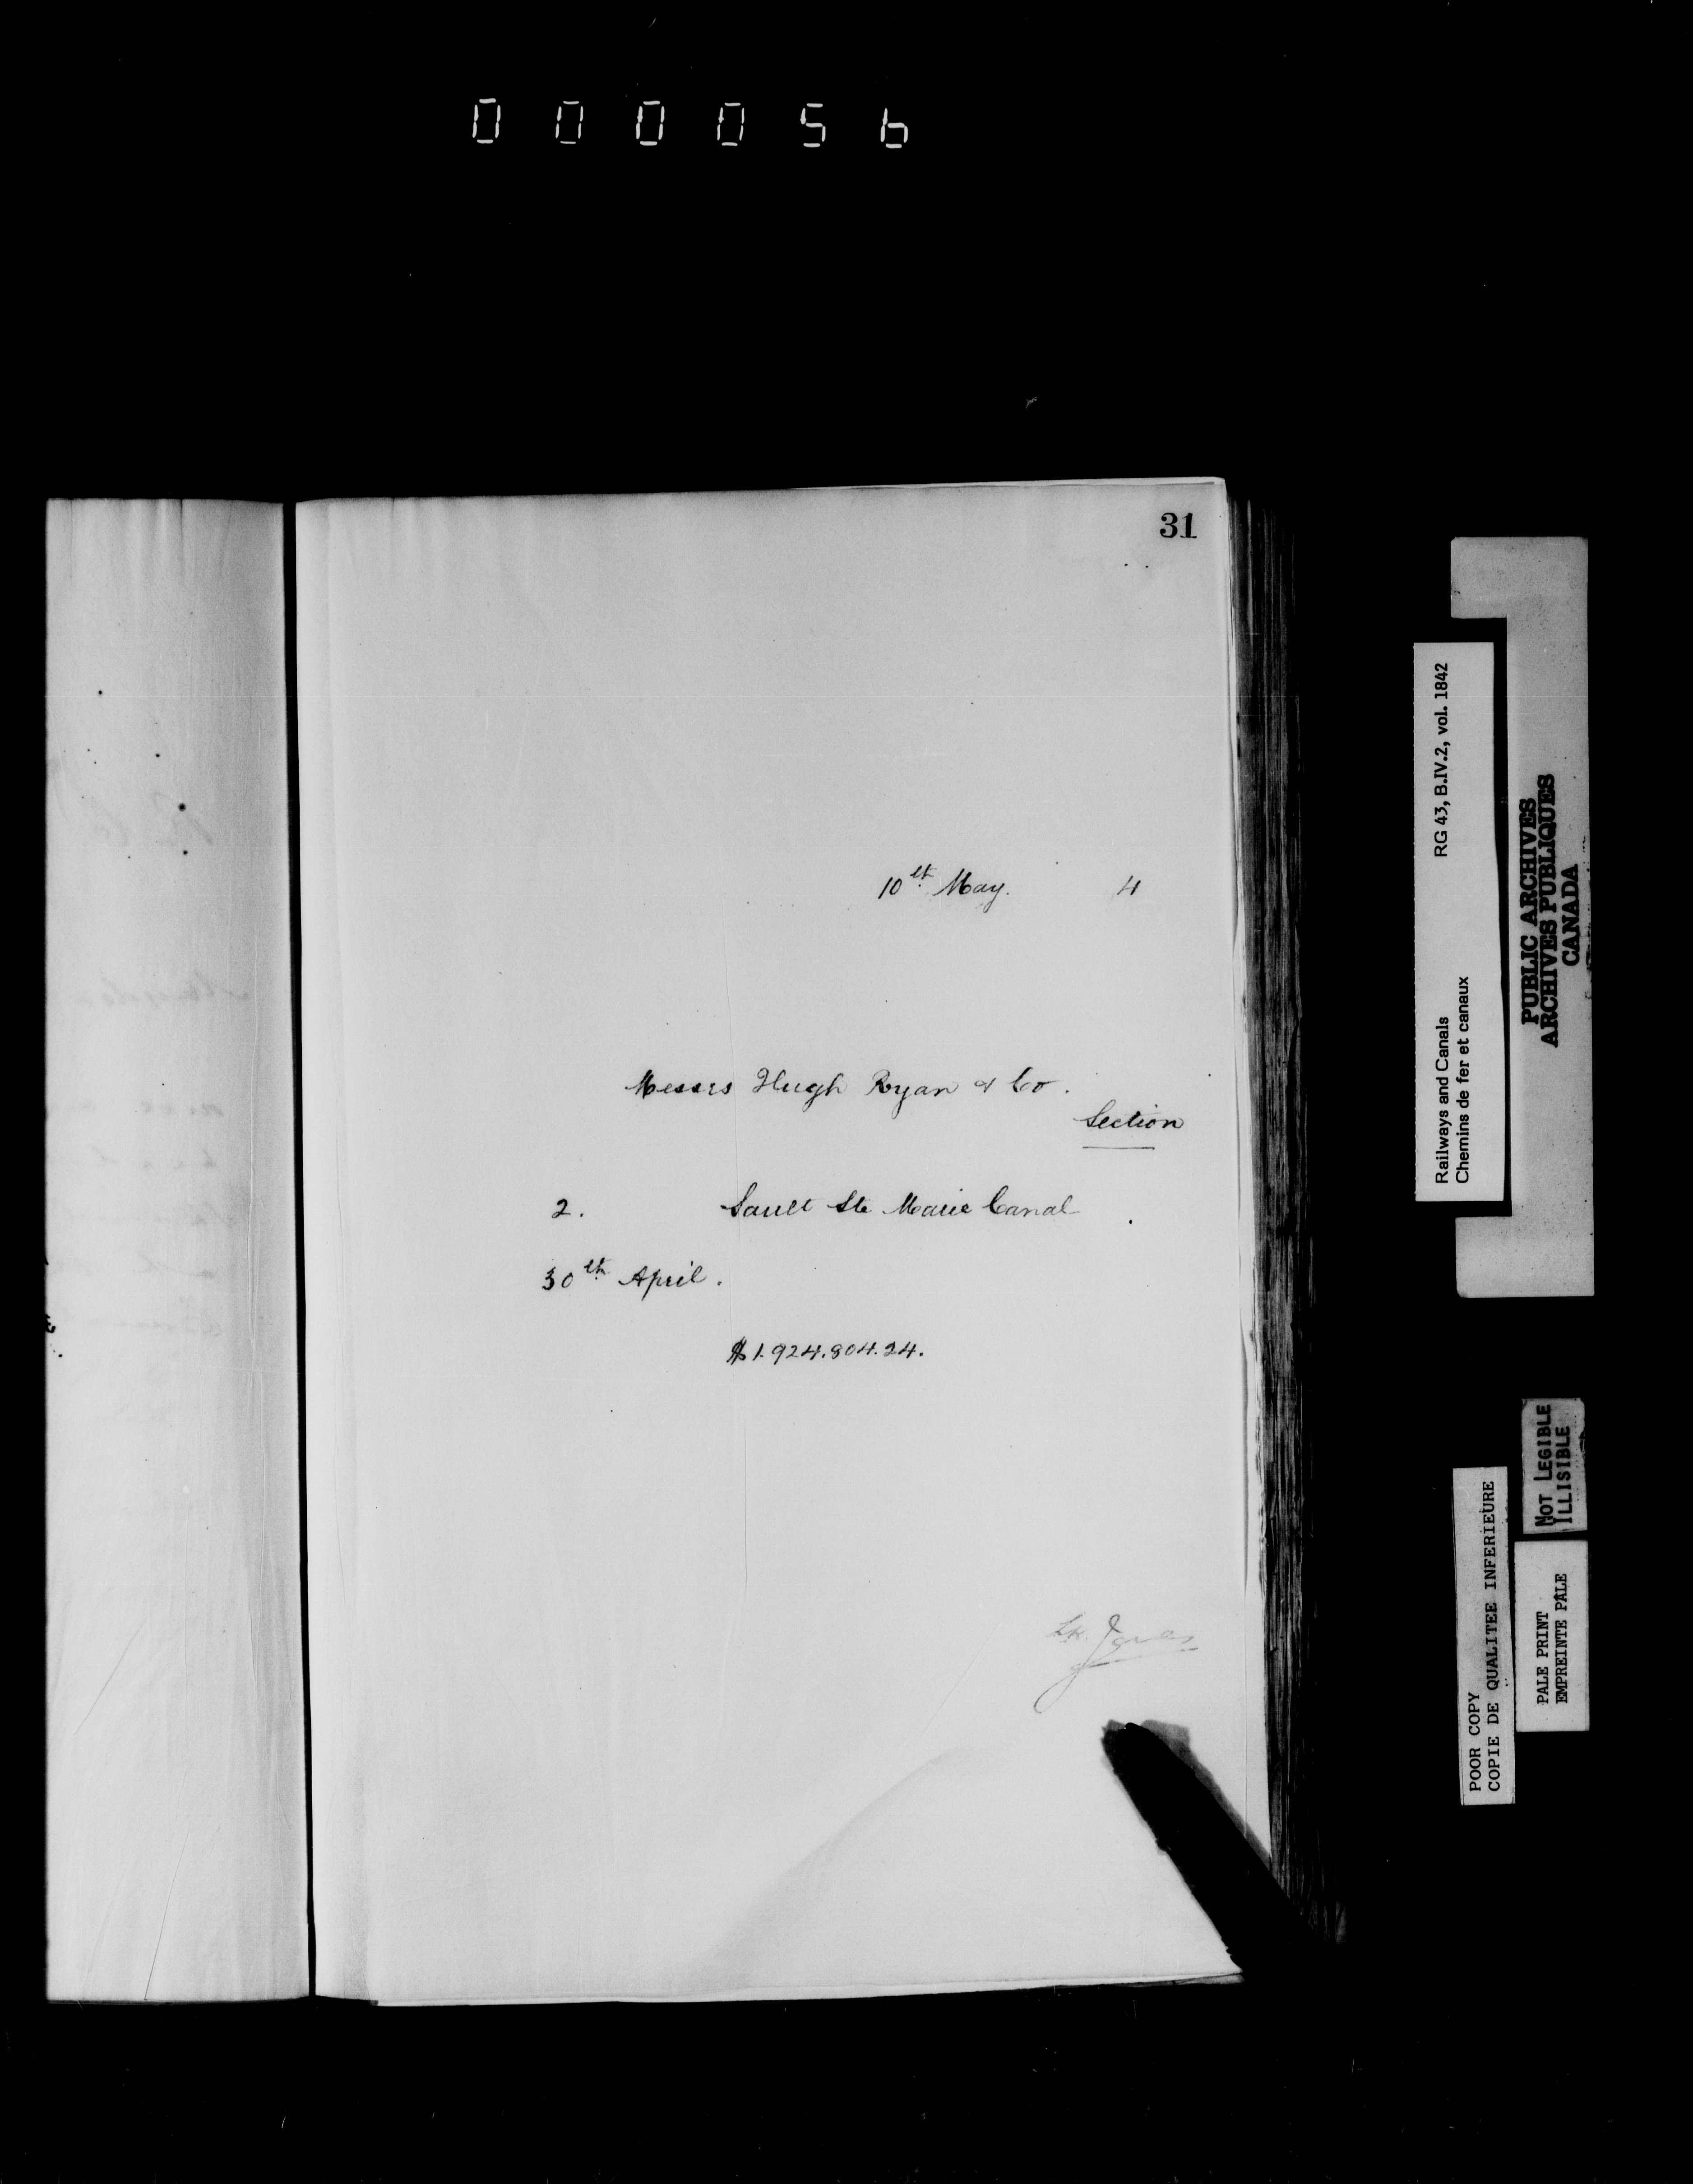 000056
31
10th May. 4
Messrs Hugh Ryan & Co.
Section
2. Sault Ste Marie Canal
30th April.
$1.924.804.24.
Railways and Canals RG 43, B.IV.2, vol. 1842
Chemins de fer et canaux
PUBLIC ARCHIVES
ARCHIVES PUBLIQUES
CANADA
NOT LEGIBLE
ILLISIBLE
POOR COPY
COPIE DE QUALITEE INFERIEURE
PALE PRINT
EMPREINTE PALE